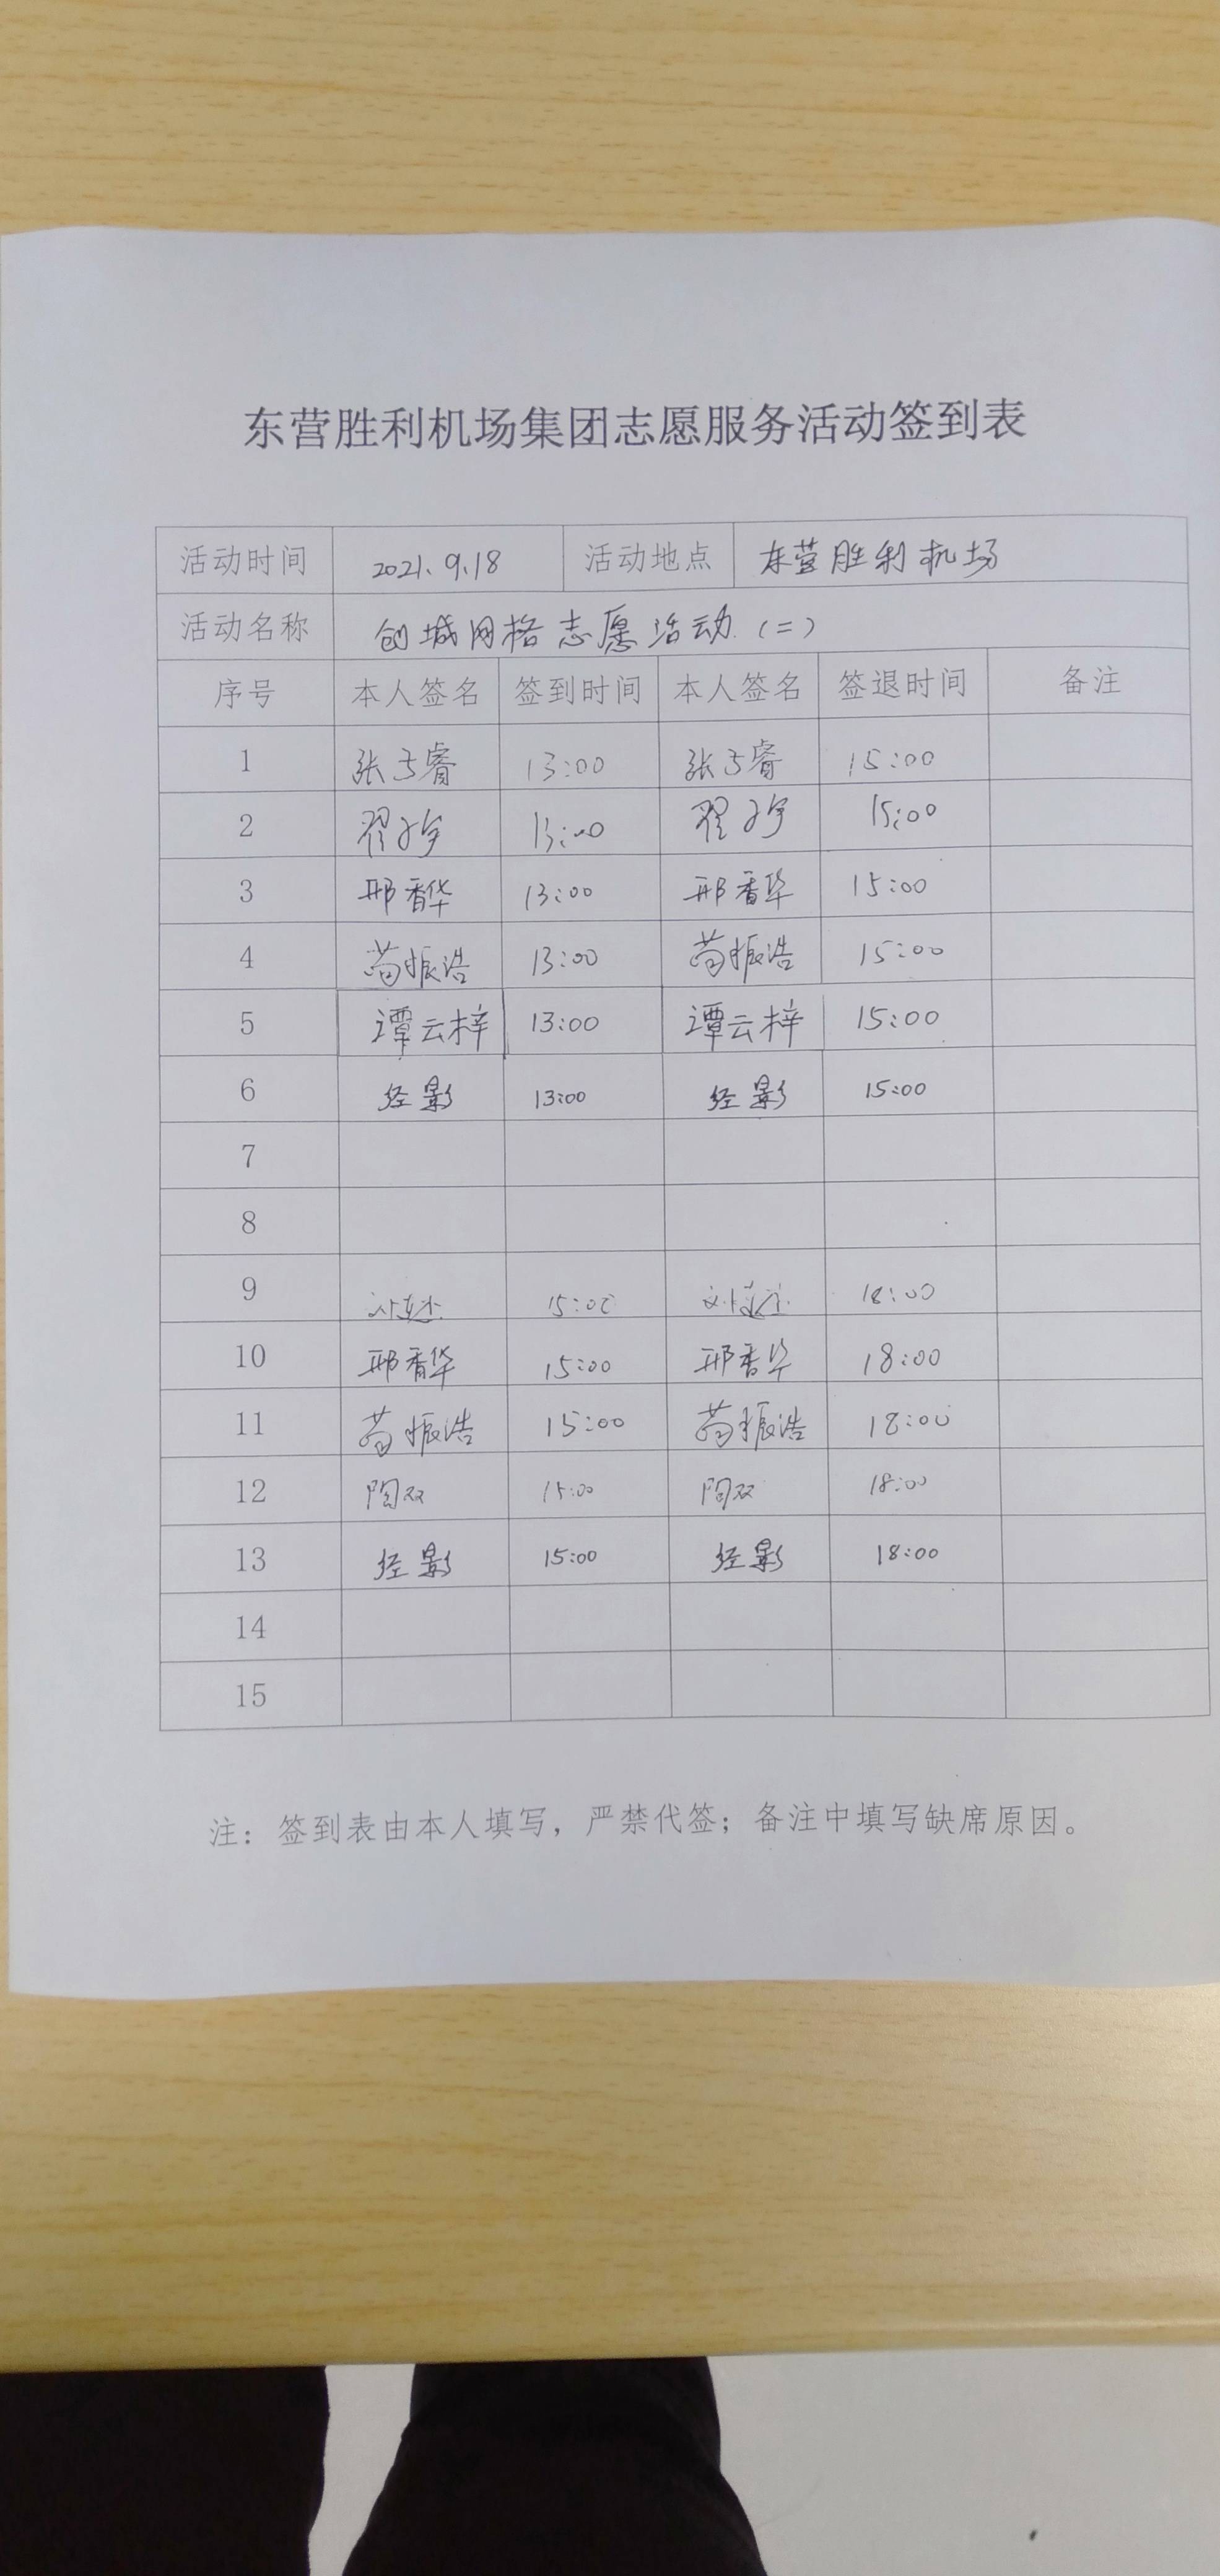 东营胜利机场集团志愿服务活动签到表
活动时间 2021.9.18 活动地点 东营胜利机场
活动名称 创城网格志愿活动(二)
序号 本人签名 签到时间 本人签名 签退时间 备注
1 张于睿 13:00 张于睿 15:00
2 翟子宇 13:00 翟子宇 15:00
3 邢香华 13:00 邢香华 15:00
4 苟振浩 13:00 苟振浩 15:00
5 谭云梓 13:00 谭云梓 15:00
6 经影 13:00 经影 15:00
7
8
9 15:00 18:00
10 邢香华 15:00 邢香华 18:00
11 苟振浩 15:00 苟振浩 18:00
12 陶双 15:00 陶双 18:00
13 经影 15:00 经影 18:00
14
15
注：签到表由本人填写，严禁代签；备注中填写缺席原因。